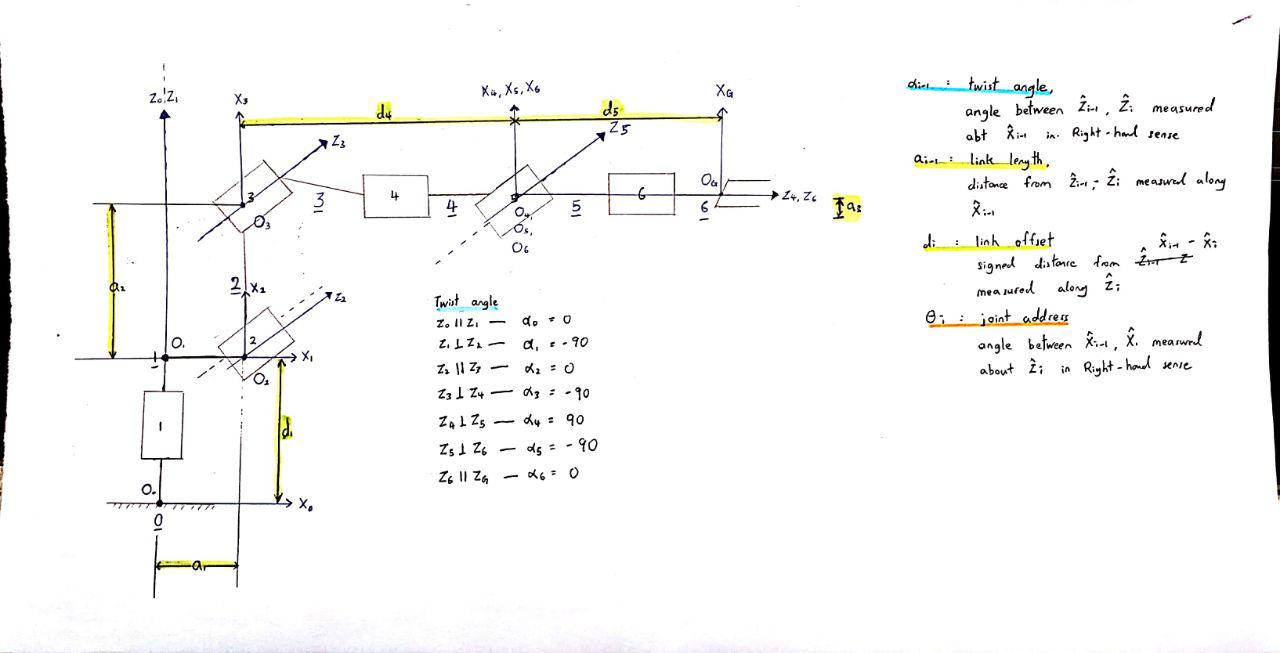 Z₀, Z₁
X₃
d₄
X₄, X₅, X₆
d₅
X_G
Z₃
Z₅
3
O₃
3
4
4
O₄,
O₅,
O₆
5
6
O_G
6
Z₄, Z₆
a₃
a₂
2
X₂
Z₂
O₁
1
2
X₁
O₂
1
d₁
O₀
X₀
0
a₁
Twist angle
Z₀ || Z₁ — α₀ = 0
Z₁ ⊥ Z₂ — α₁ = -90
Z₂ || Z₃ — α₂ = 0
Z₃ ⊥ Z₄ — α₃ = -90
Z₄ ⊥ Z₅ — α₄ = 90
Z₅ ⊥ Z₆ — α₅ = -90
Z₆ || Z_G — α₆ = 0
αi-1 : twist angle,
angle between Ẑi-1 , Ẑi measured
abt X̂i-1 in Right-hand sense
ai-1 : link length,
distance from Ẑi-1 - Ẑi measured along
X̂i-1
di : link offset
signed distance from X̂i-1 - X̂i
measured along Ẑi
θi : joint address
angle between X̂i-1 , X̂i measured
about Ẑi in Right-hand sense